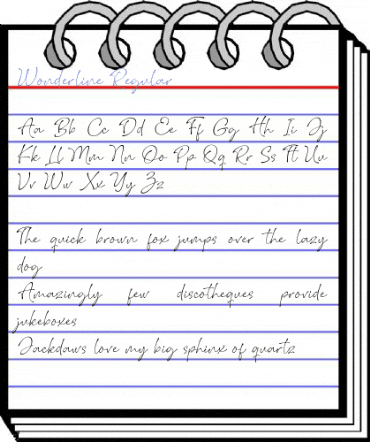 Wonderline Regular
Aa Bb Cc Dd Ee Ff Gg Hh Ii Jj
Kk Ll Mm Nn Oo Pp Qq Rr Ss Tt Uu
Vv Ww Xx Yy Zz
The quick brown fox jumps over the lazy
dog
Amazingly few discotheques provide
jukeboxes
Jackdaws love my big sphinx of quartz